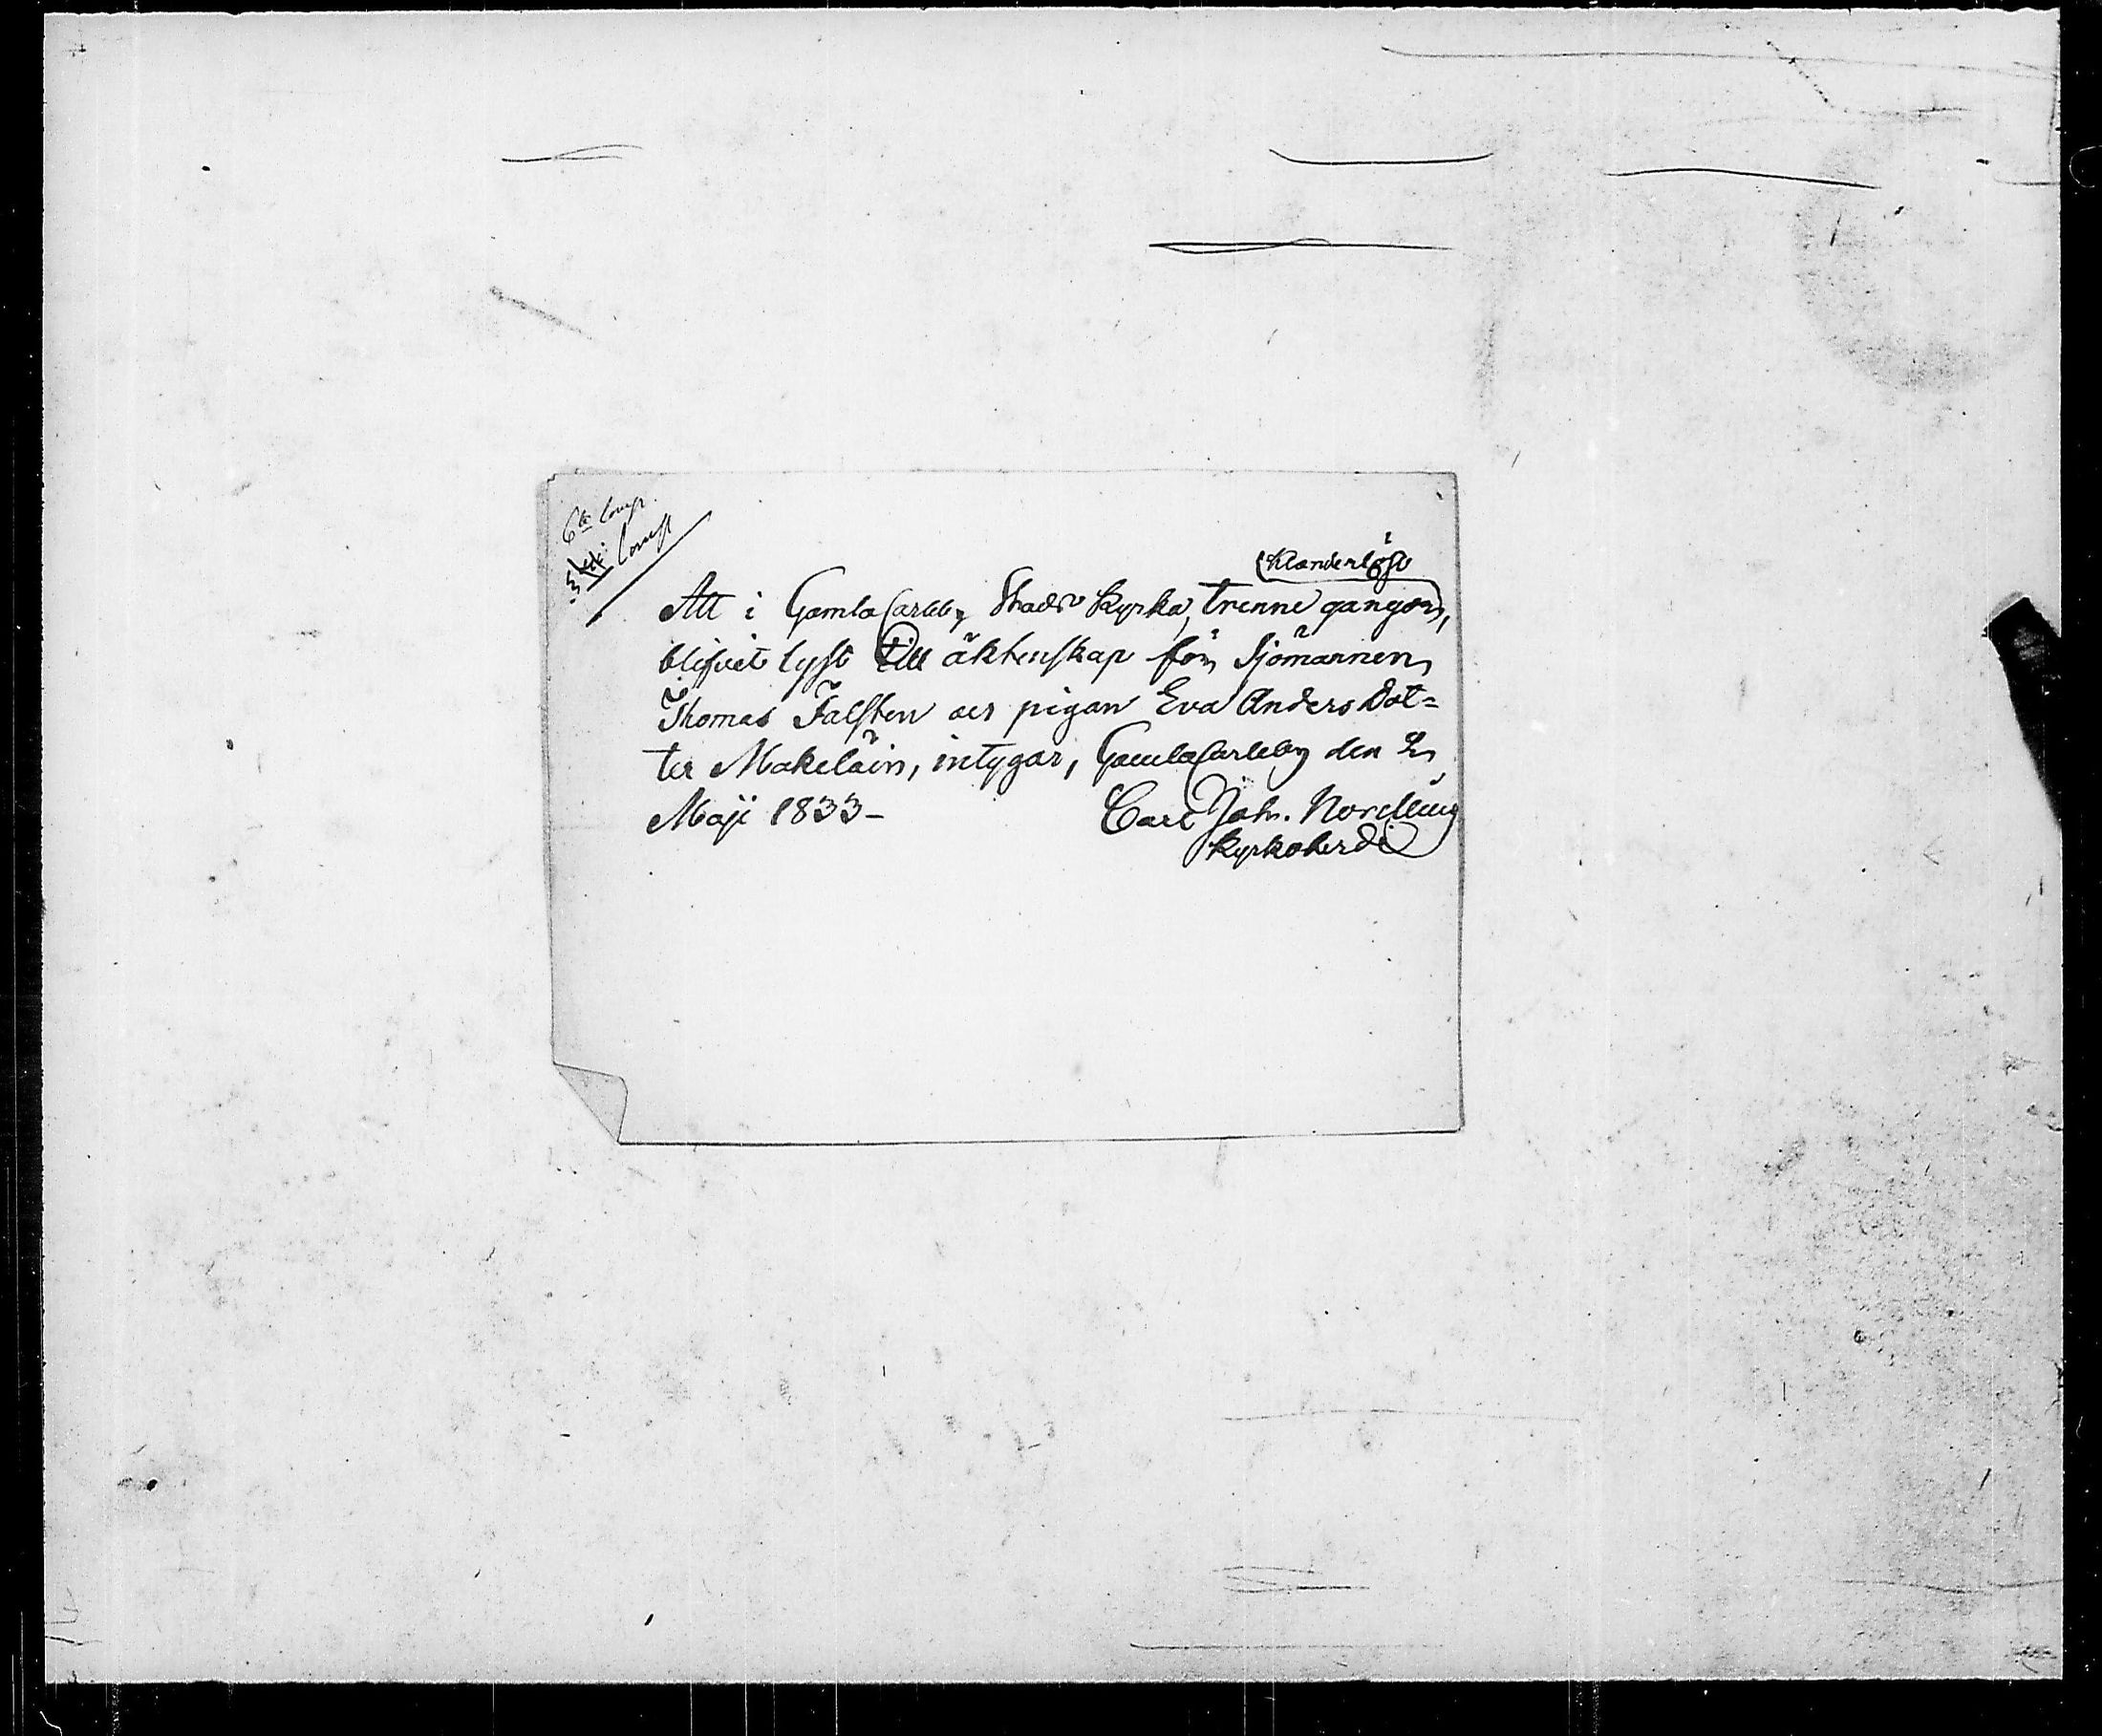 6te Comp.
Comp
klanderlöst
Att i GamlaCarleby Stads Kyrka, trenne gånger,
blifvit lyst till äktenskap för Sjömannen
Thomas Falsten och pigan Eva Anders Dot=
ter Makeläin, intygar, GamlaCarleby den 2
Maji 1833-
Carl Joh. Nordling
Kyrkoherde